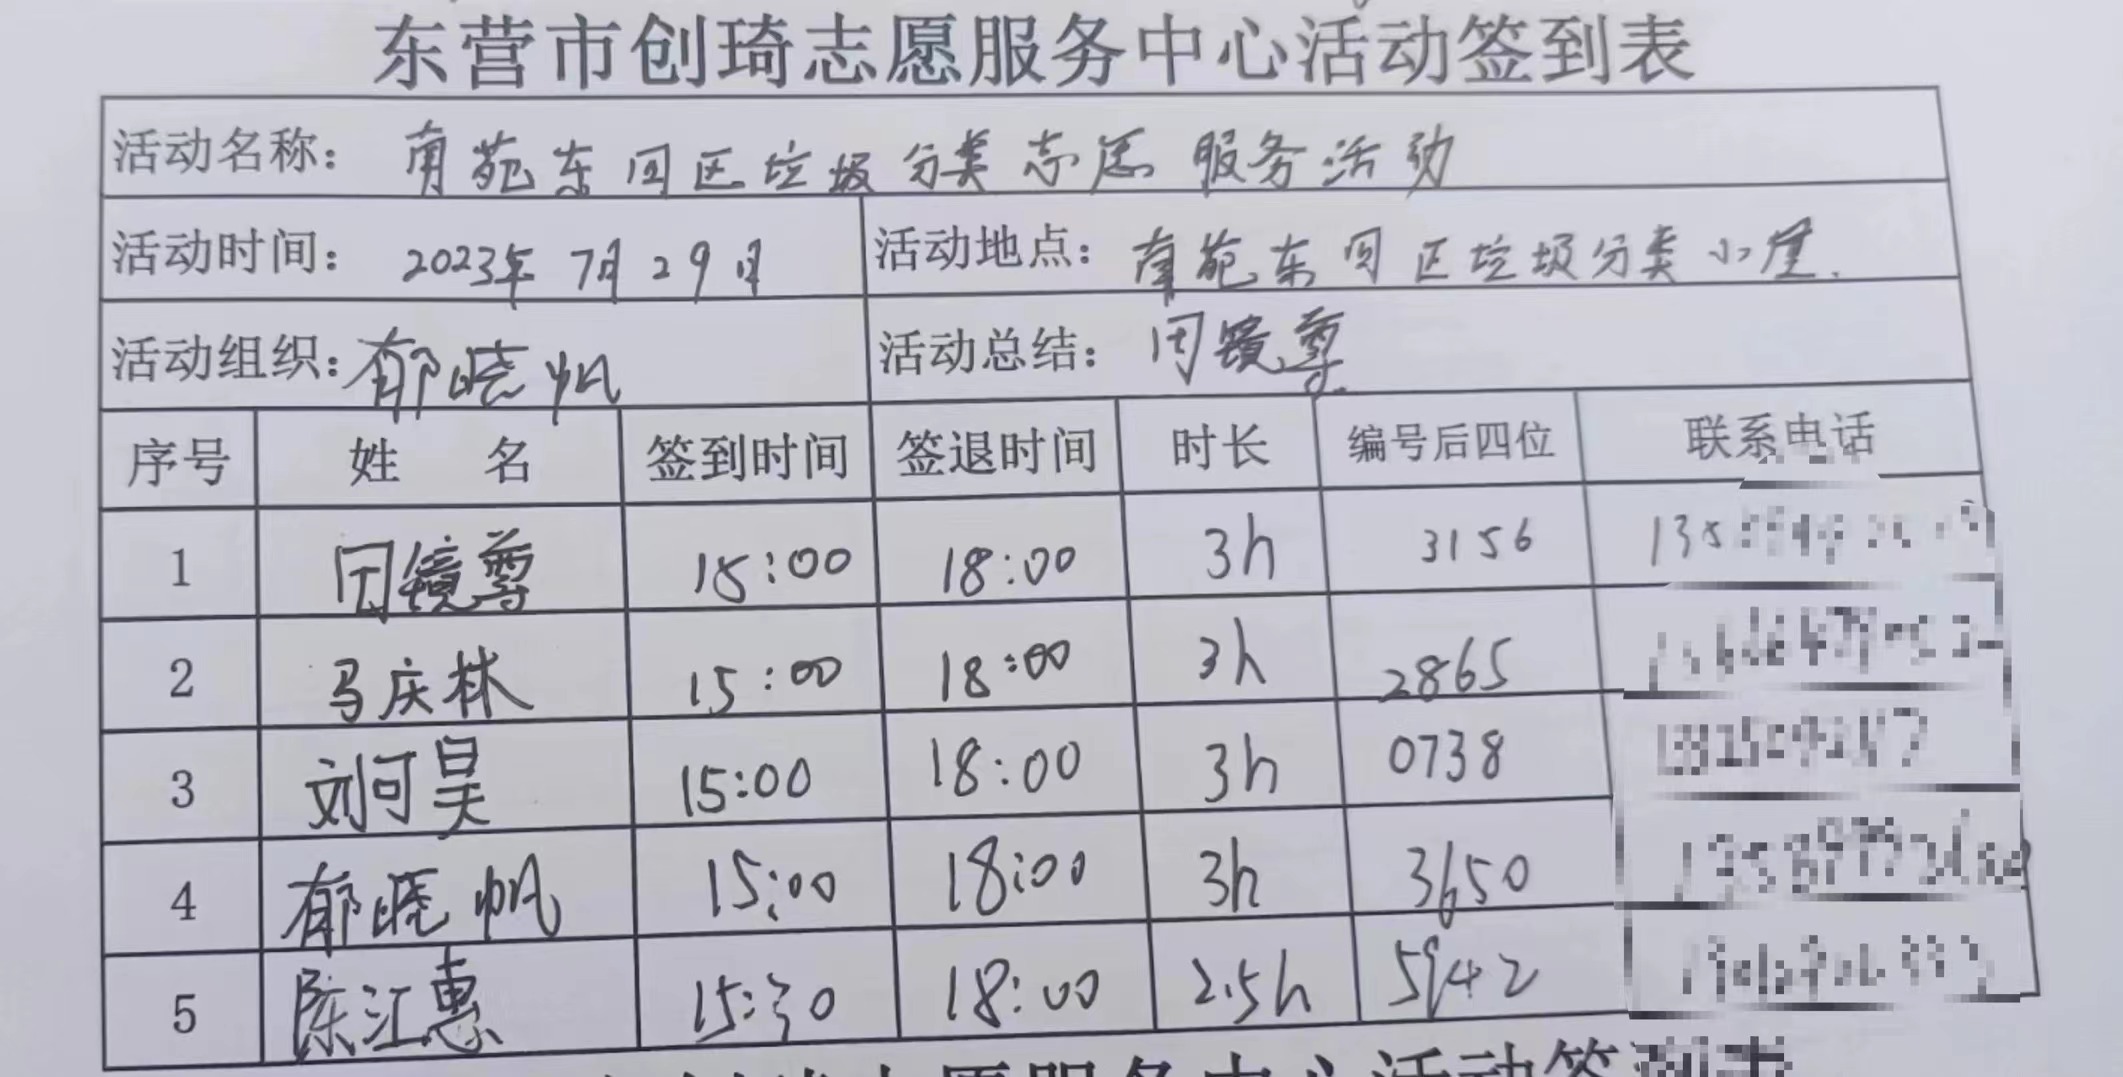 东营市创琦志愿服务中心活动签到表
活动名称： 南苑东园区垃圾分类志愿服务活动
活动时间： 2023年7月29日 活动地点： 南苑东园区垃圾分类小屋.
活动组织： 郁晓帆 活动总结： 周镜尊
序号 姓 名 签到时间 签退时间 时长 编号后四位 联系电话
1 周镜尊 15:00 18:00 3h 3156
2 马庆林 15:00 18:00 3h 2865
3 刘可昊 15:00 18:00 3h 0738
4 郁晓帆 15:00 18:00 3h 3650
5 陈江惠 15:30 18:00 2.5h 5942